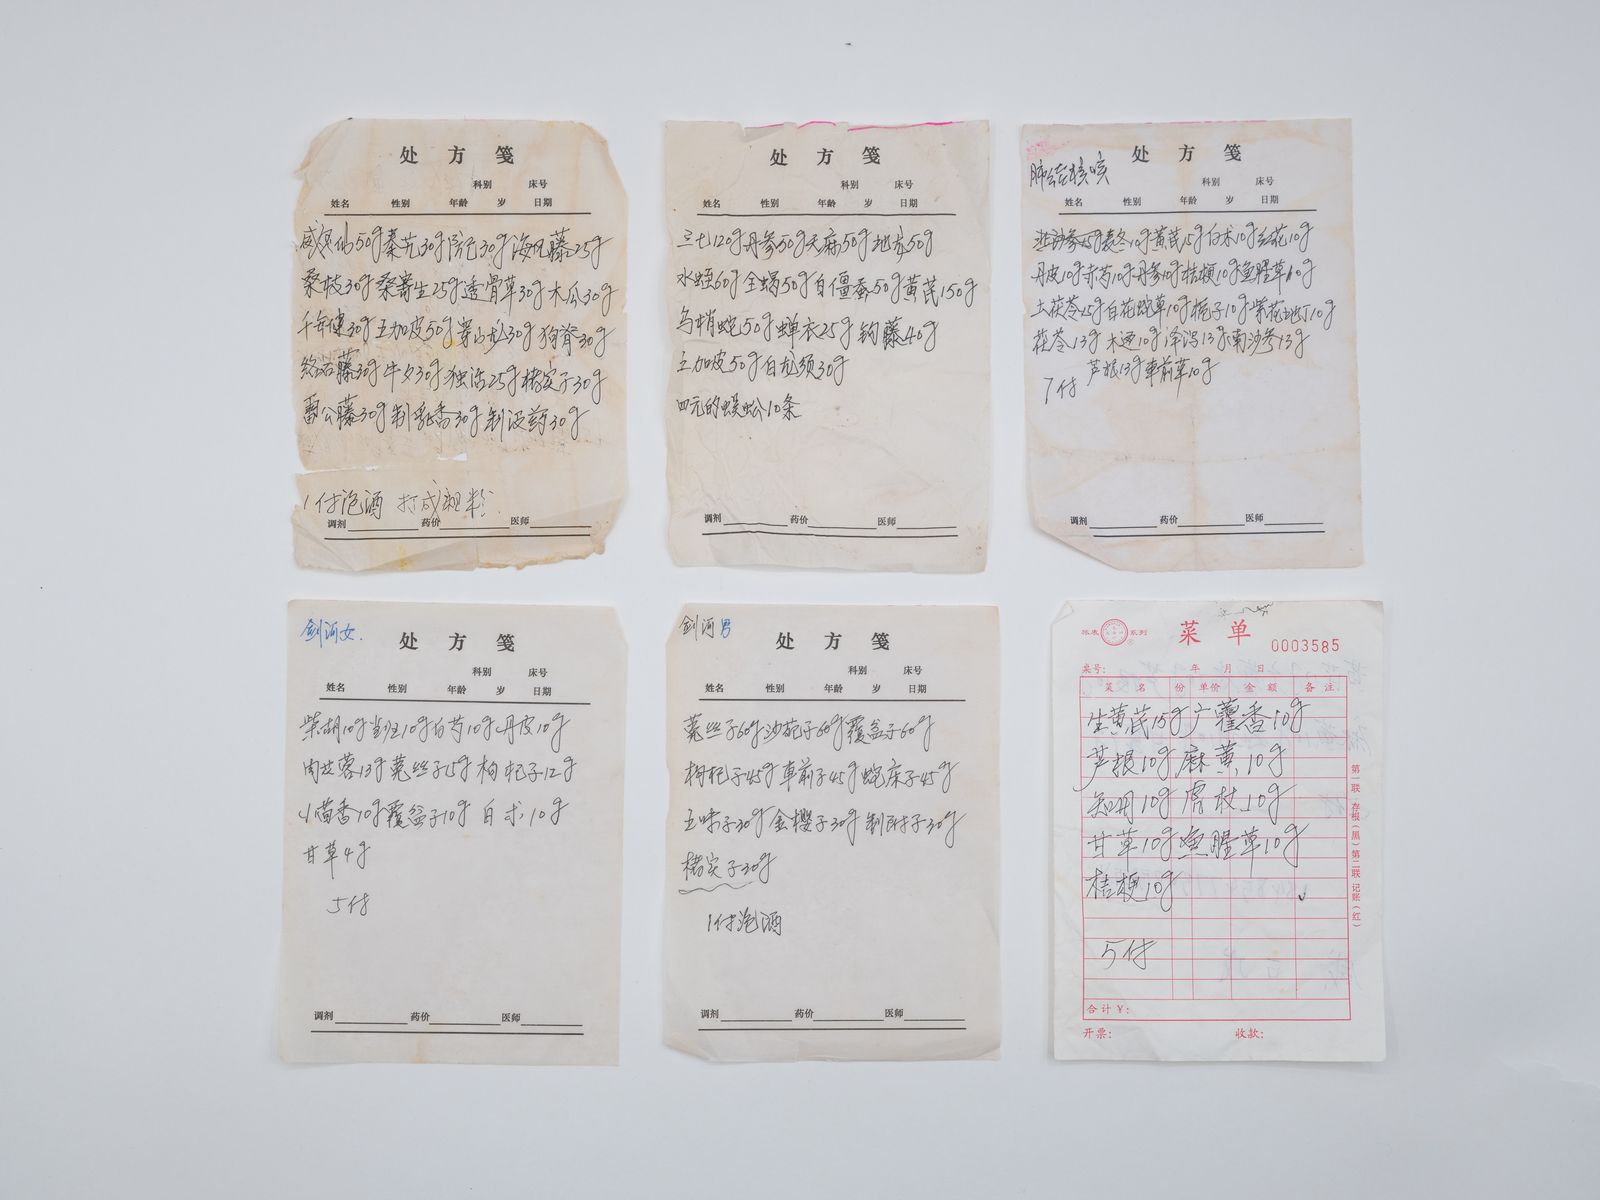 处方笺
科别 床号
姓名 性别 年龄 岁 日期
威灵仙50g秦艽30g防己30g海风藤25g
桑枝30g桑寄生25g透骨草30g木瓜30g
千年健30g五加皮50g穿山龙30g狗脊30g
络石藤30g牛夕30g独活25g楮实子30g
雷公藤30g制乳香30g制没药30g
1付泡酒 打成粗粉
调剂 药价 医师
处方笺
科别 床号
姓名 性别 年龄 岁 日期
三七120g丹参50g天麻50g地龙50g
水蛭60g全蝎50g白僵蚕50g黄芪150g
乌梢蛇50g蝉衣25g钩藤40g
五加皮50g白龙须30g
四元的蜈蚣10条
调剂 药价 医师
处方笺
咳
科别 床号
姓名 性别 年龄 岁 日期
10g黄芪15g白术10g红花10g
丹皮10g赤芍10g丹参10g桔梗10g鱼腥草10g
土茯苓15g白花蛇草10g栀子10g紫花地丁10g
茯苓13g木通10g泽泻13g南沙参13g
芦根13g车前草10g
7付
调剂 药价 医师
剑河女.
处方笺
科别 床号
姓名 性别 年龄 岁 日期
柴胡10g当归10g白芍10g丹皮10g
肉苁蓉13g菟丝子15g枸杞子12g
小茴香10g覆盆子10g白术10g
甘草4g
5付
调剂 药价 医师
剑河男
处方笺
科别 床号
姓名 性别 年龄 岁 日期
菟丝子60g沙苑子60g覆盆子60g
枸杞子45g车前子45g蛇床子45g
五味子30g金樱子30g制附子30g
楮实子30g
1付泡酒
调剂 药价 医师
账表 系列
菜单
0003585
桌号: 年 月 日
菜名 份 单价 金额 备注
生黄芪15g广藿香10g
芦根10g麻黄10g
知母10g虎杖10g
甘草10g鱼腥草10g
桔梗10g
5付
合计¥:
开票: 收款:
第一联 存根(黑) 第二联 记账(红)